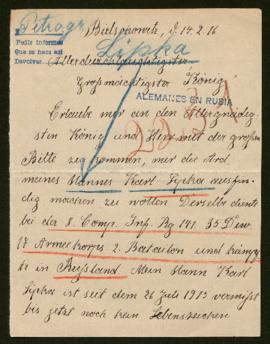 Petrogr.
Pedir informes
Que se haga así
Devolver
Bielschowitz, d 14.2.16
Lypka
Allerdurchlauchtigster
Großmächtigster König!
ALEMANES EN RUSIA
Erlaube mir an den Allergnädig
sten König und Herr mit der großen
Bitte zu kommen, mir der Ard
meines Mannes Karl Lypka ausfin
dig machen zu wollen Derselbe diente
bei der 8. Comp. Inf. Rg 141. 35 Diw.
17 Armeekorps 2. Batailon und kämpf
te in Rußland. Mein Mann Karl
Lypka ist seit dem 26 Juli 1915 vermißt
bis jetzt noch kein Lebenszeichen